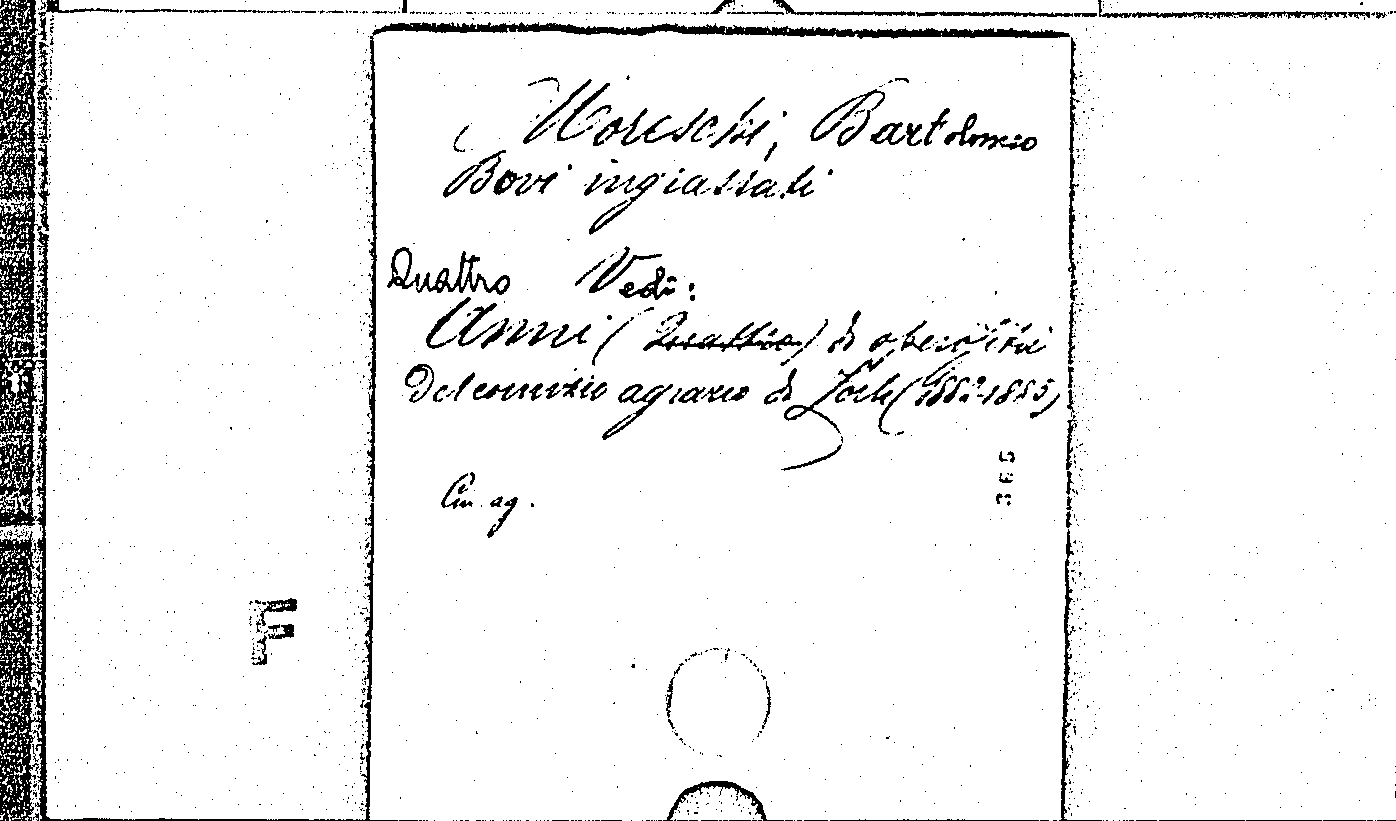 Moreschi, Bartolomeo
Bovi ingrassati
Quattro Vedi:
Anni (Quattro) di operosità
Del comizio agrario di Forlì (1882-1885)
365
Com. ag.
F